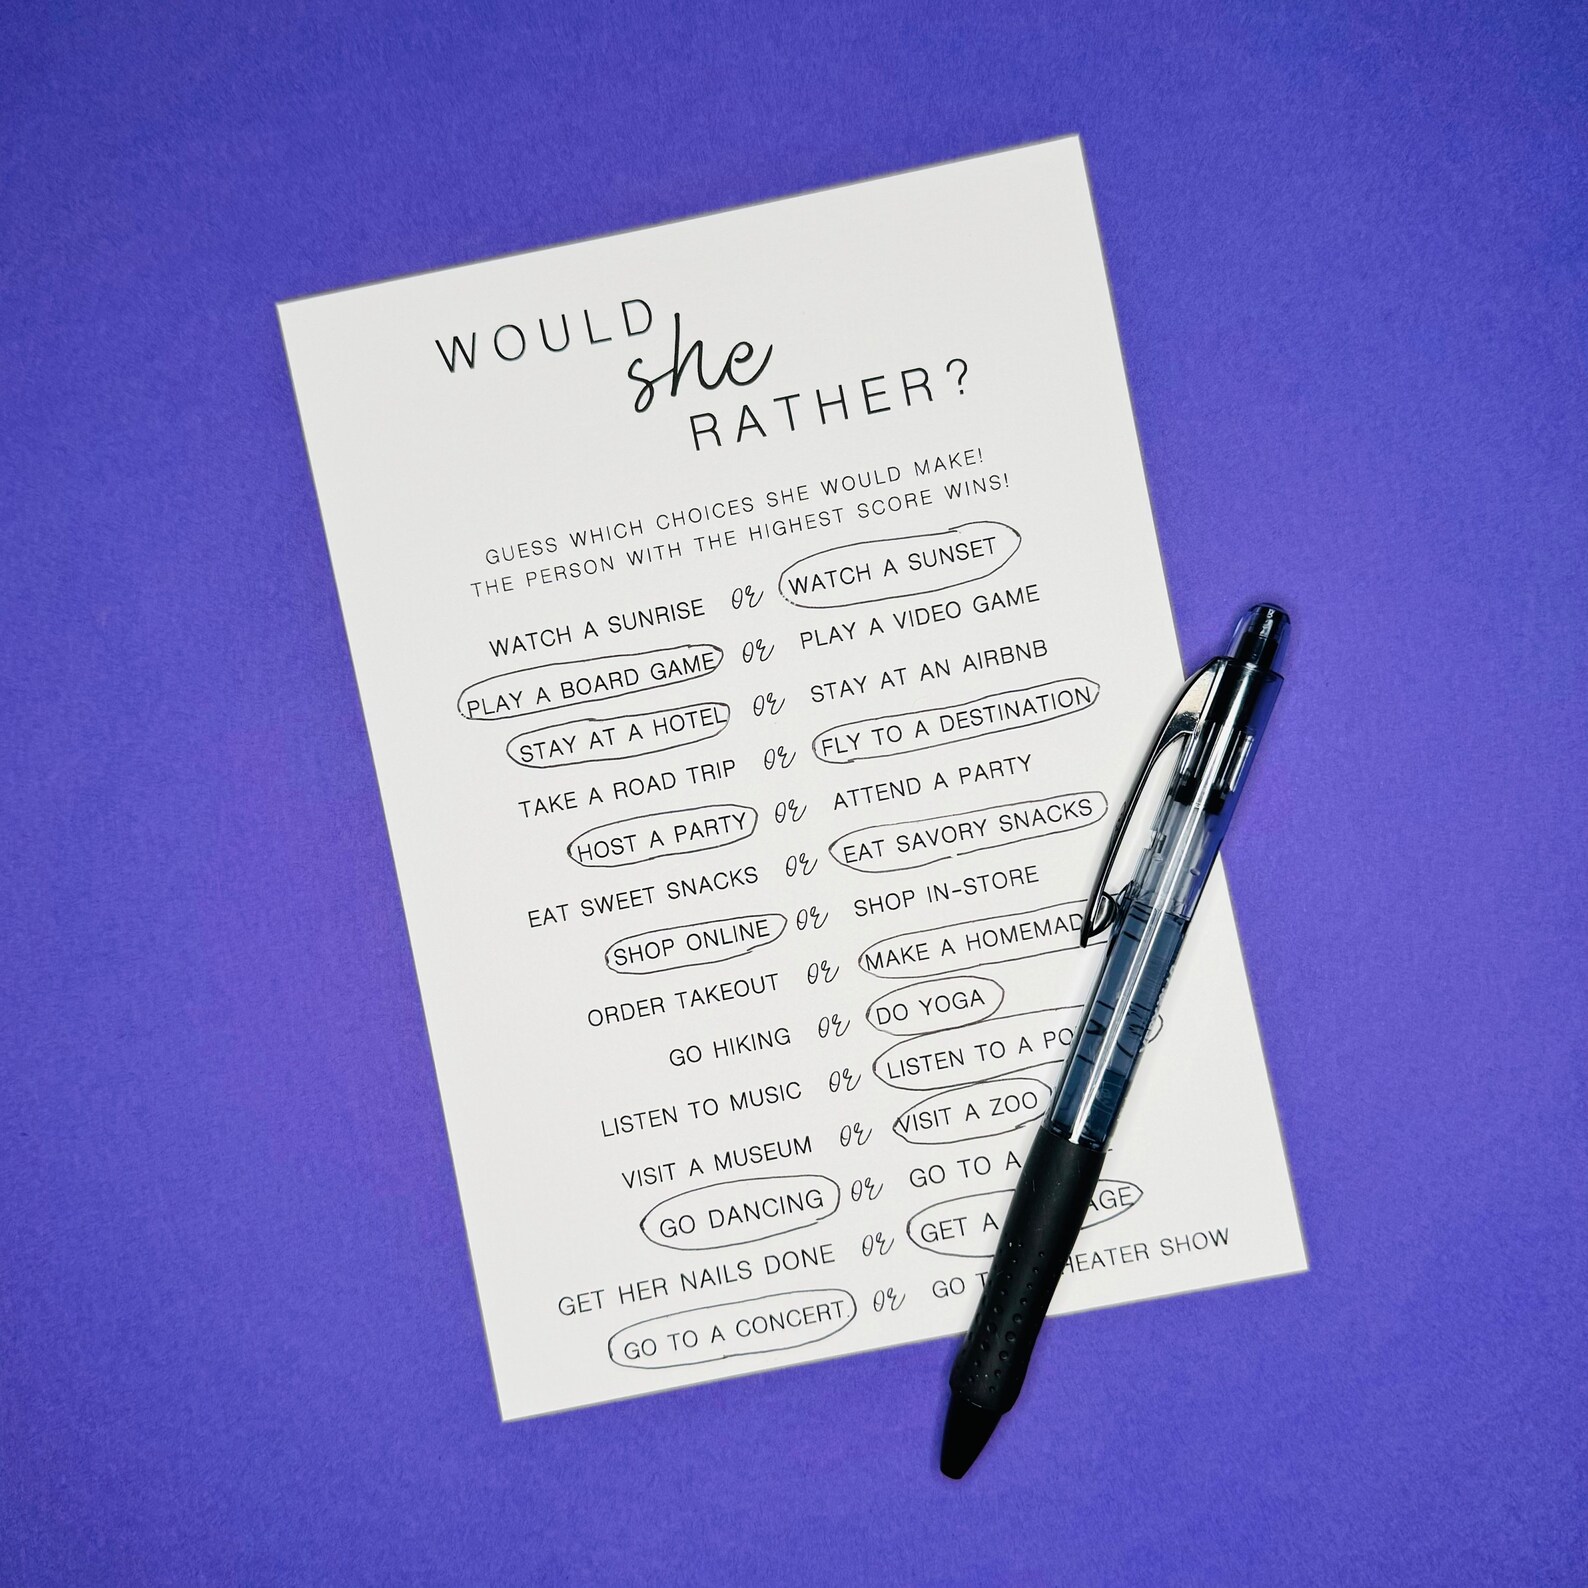 WOULD
she
RATHER?
GUESS WHICH CHOICES SHE WOULD MAKE!
THE PERSON WITH THE HIGHEST SCORE WINS!
WATCH A SUNRISE or WATCH A SUNSET
PLAY A BOARD GAME or PLAY A VIDEO GAME
STAY AT A HOTEL or STAY AT AN AIRBNB
TAKE A ROAD TRIP or FLY TO A DESTINATION
HOST A PARTY or ATTEND A PARTY
EAT SWEET SNACKS or EAT SAVORY SNACKS
SHOP ONLINE or SHOP IN-STORE
ORDER TAKEOUT or MAKE A
GO HIKING or DO YOGA
LISTEN TO MUSIC or LISTEN TO A
VISIT A MUSEUM or VISIT A ZOO
GO DANCING or GO TO A
GET HER NAILS DONE or GET A
GO TO A CONCERT or GO SHOW